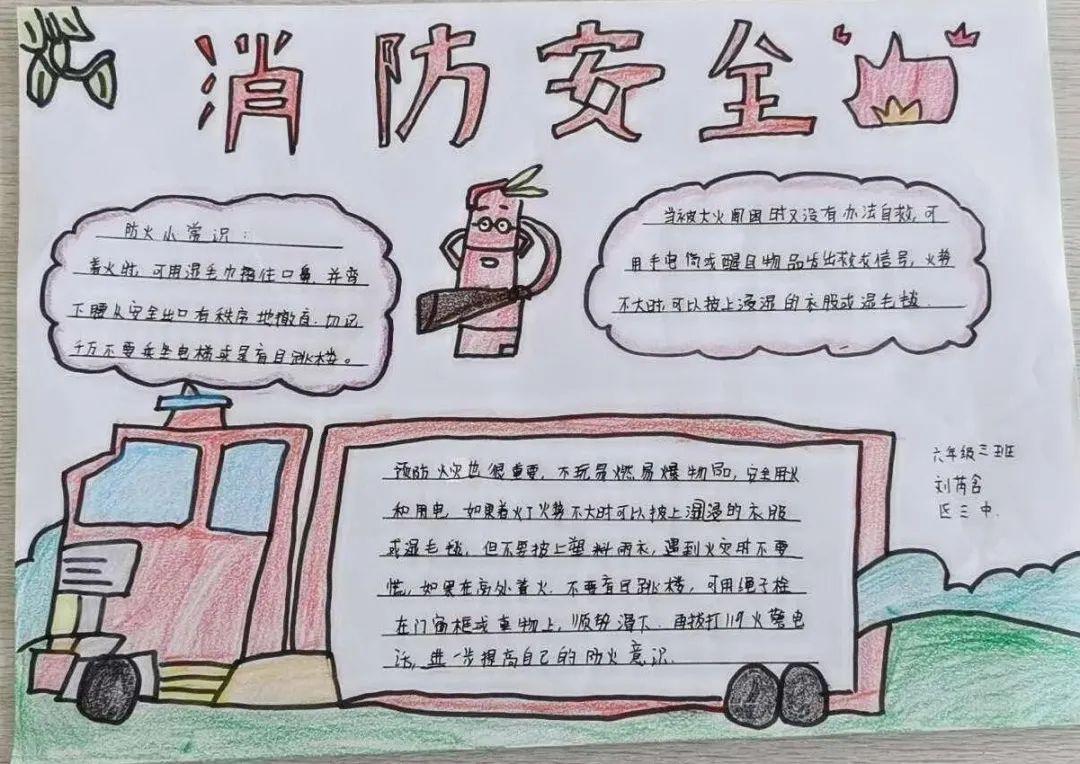 消防安全
防火小常识：
着火时，可用湿毛巾捂住口鼻，并弯
下腰从安全出口有秩序地撤离，切记
千万不要乘坐电梯或是盲目跳楼。
当被大火围困时又没有办法自救，可
用手电筒或醒目物品发出救救信号，火势
不大时，可以披上浸湿的衣服或湿毛毯
预防火灾也很重要，不玩易燃易爆物品，安全用火
和用电，如果着火了火势不大时可以披上浸的衣服
或湿毛毯，但不要披上塑料雨衣，遇到火灾时不要
慌，如果在高处着火，不要盲目跳楼，可用绳子栓
在门窗框或重物上，顺势滑下，再拨打119火警电
话，进一步提高自己的防火意识.
六年级三班
刘芮含
区三中.